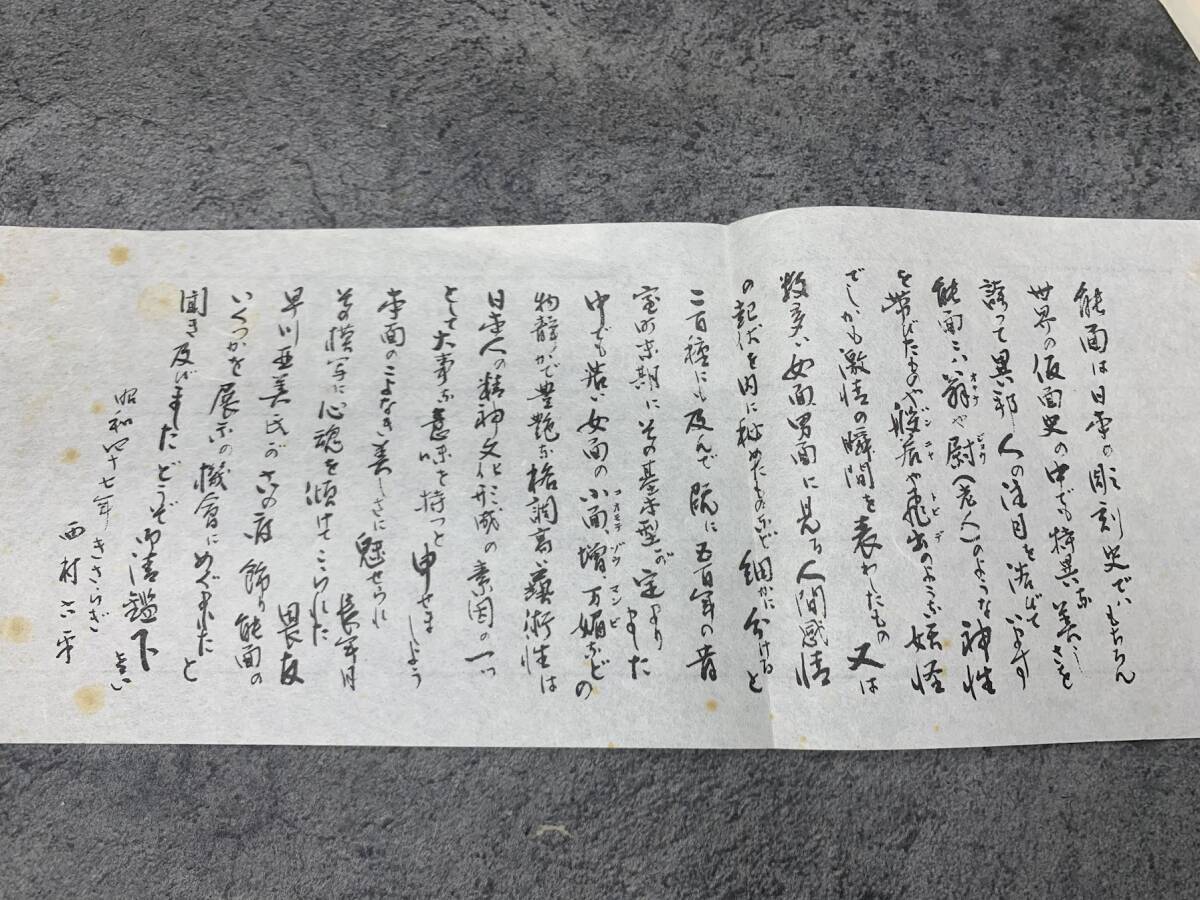 能面は日本の彫刻史ではもちろん
世界の仮面史の中でも特異な美しさを
誇って異郭人の注目を浴びています
能面には翁や尉(老人)のような神性
を帯びたものや般若や飛出のような妖怪
でしかも激情の瞬間を表わしたもの 又は
数多い女面男面に見る人間感情
の起伏を内に秘めたものなどで細かに分けると
二百種にも及んで既に五百年の昔
室町末期にその基本型が定まりました
中でも若い女面の小面、増、万媚などの
物静かで豊艶な格調高い藝術性は
日本人の精神文化形成の素因の一つ
として大事な意味を持つと申せましょう
本面のこよなき美しさに魅せられ 長年月
その模写に心魂を傾けてこられた
早川亜美氏がこの度 飾り能面の 畏友
いくつかを展示の機會にめぐまれたと
聞き及びましたどうぞ御清鑑下さい
昭和四十七年きさらぎ
西村 平